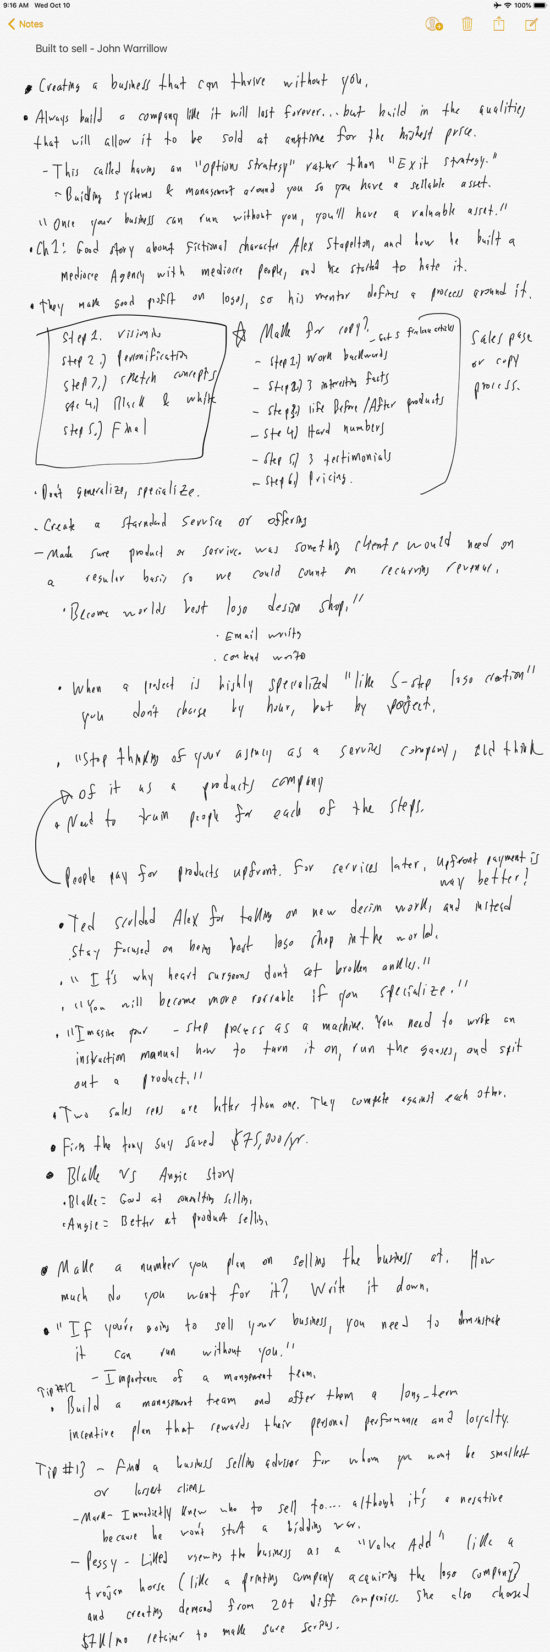 9:16 AM Wed Oct 10
100%
Notes
Built to sell - John Warrillow
• Creating a business that can thrive without you.
• Always build a company like it will last forever... but build in the qualities
that will allow it to be sold at anytime for the highest price.
- This called having an "options strategy" rather than "Exit strategy."
- Building systems & management around you so you have a sellable asset.
"Once your business can run without you, you'll have a valuable asset."
• Ch 1: Good story about fictional character Alex Stapelton, and how he built a
Mediocre Agency with mediocre people, and he started to hate it.
• They make good profit on logos, so his mentor defines a process around it.
Step 1. Visioning
Step 2.) Personification
Step 3.) sketch concepts
Step 4.) Black & white
Step 5.) Final
☆ Make for copy?
- Step 1.) Work backwards
- Step 2.) 3 interesting facts
- Step 3.) life Before/After products
- Step 4) Hard numbers
- Step 5.) 3 testimonials
- Step 6) Pricing.
Sales page
or copy
process.
• Don't generalize, specialize.
• Create a standard service or offering
- Made sure product or service was something clients would need on
a regular basis so we could count on recurring revenue.
• Become worlds best logo design shop."
• Email writing
• content
• When a project is highly specialized "like 5-step logo creation"
you don't charge by hour, but by project.
• "Stop thinking of your agency as a services company, and think
of it as a products company
• Need to train people for each of the steps.
People pay for products upfront. For services later. Upfront payment is
way better!
• Ted scolded Alex for taking on new design work, and instead
stay focused on being best logo shop in the world.
• "It's why heart surgeons don't set broken ankles."
• "You will become more referable if you specialize."
• "Imagine your - step process as a machine. You need to write an
instruction manual how to turn it on, run the gauges, and spit
out a product."
• Two sales reps are better than one. They compete against each other.
• Fires the tony guy saved $75,000/yr.
• Blake vs Angie story
• Blake = Good at consulting selling,
• Angie = Better at product selling.
• Make a number you plan on selling the business at. How
much do you want for it? Write it down.
• "If you're going to sell your business, you need to demonstrate
it can run without you."
- Importance of a mangement team.
Tip #12
• Build a management team and offer them a long-term
incentive plan that rewards their personal performance and loyalty.
Tip #13 - Find a business selling advisor for whom you wont be smallest
or largest client
- Mark - Immediately knew who to sell to.... although it's a negative
because he won't start a bidding war.
- Peggy - Liked viewing the business as a "Value Add" like a
trojan horse (like a printing company acquiring the logo company)
and creating demand from 20+ diff companies. She also charged
$7K/mo retainer to make sure serious.